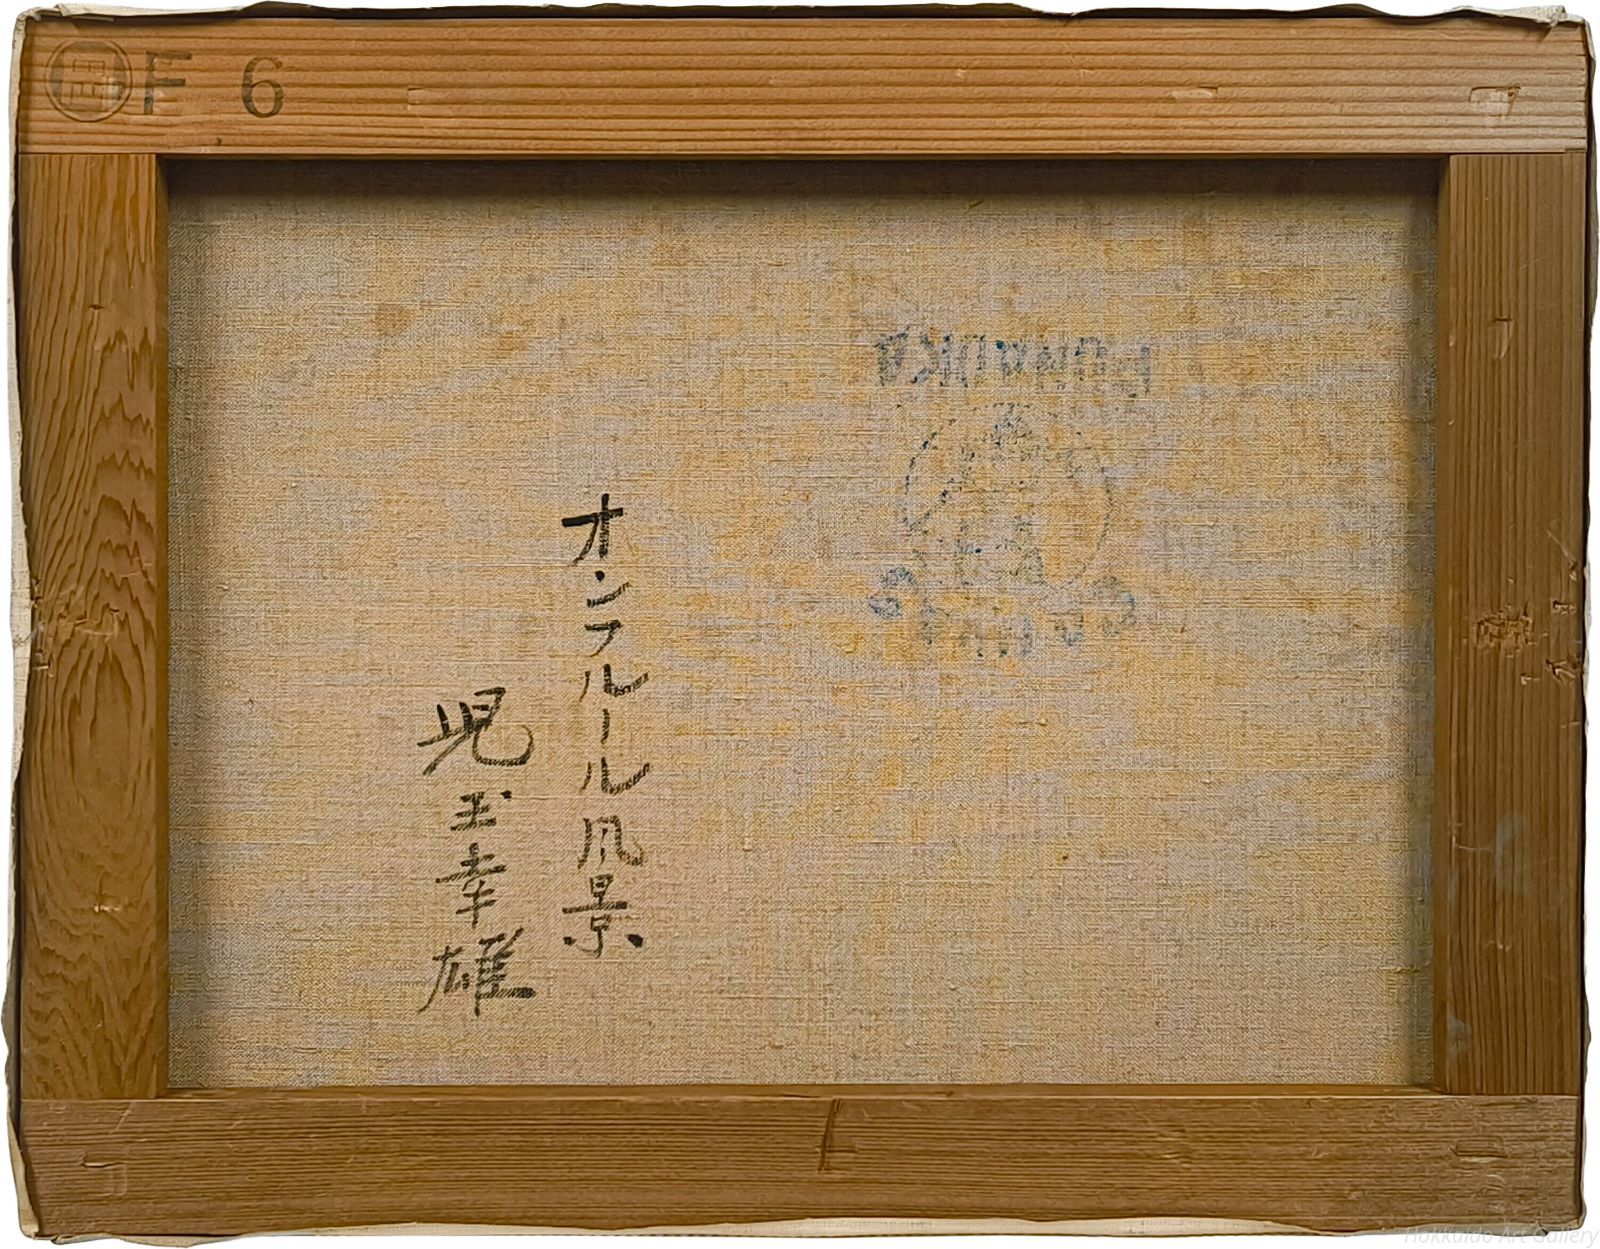 F 6
オンフルール風景
児玉幸雄
Hokkaido Art Gallery